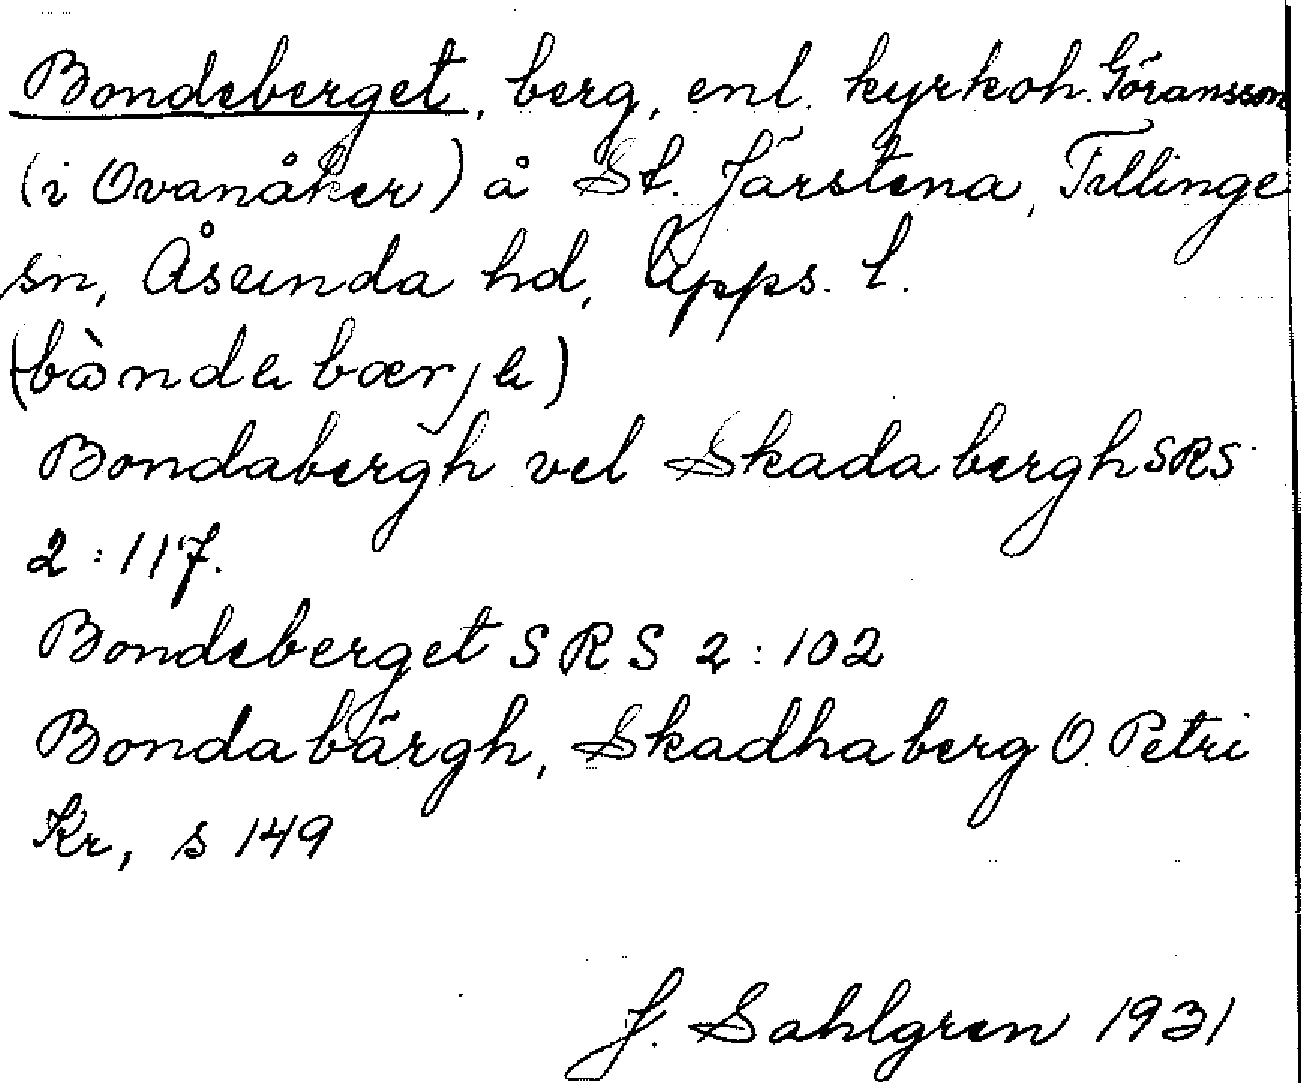 Bondeberget, berg, enl. kyrkoh. Göransson
(i Ovanåker) å St. Järstena, Tillinge
sn, Åsunda hd, Upps. l.
(bònde bærje)
Bondabergh vel Skadabergh SRS
2:117.
Bondeberget SRS 2:102
Bondabärgh, Skadhaberg O. Petri
Kr, s 149
J. Sahlgren 1931